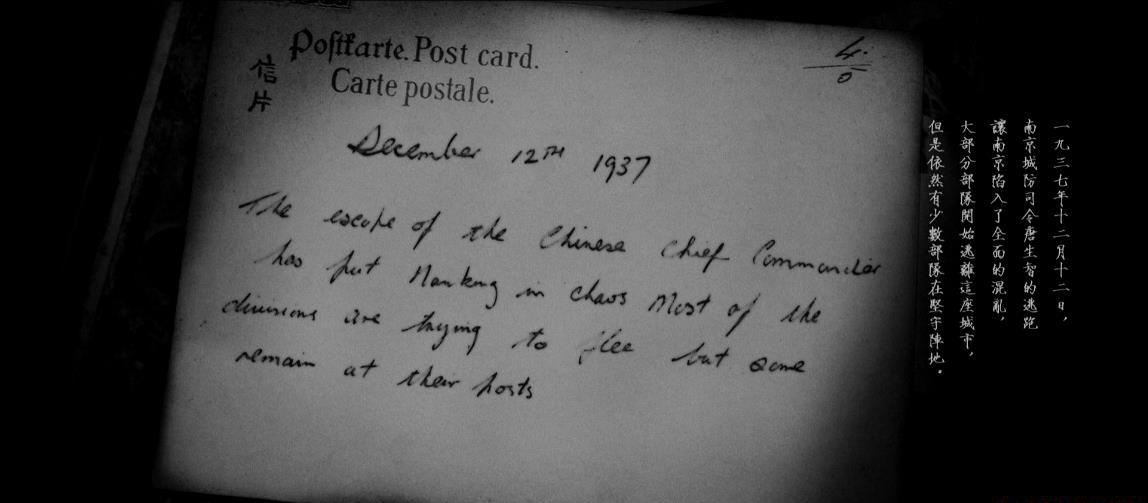 Postkarte. Post card.
Carte postale.
信片
4.
0
December 12TH 1937
The escape of the Chinese Chief Commander
has put Nanking in chaos Most of the
divisions are trying to flee but some
remain at their posts
一九三七年十二月十二日，
南京城防司令唐生智的逃跑
讓南京陷入了全面的混亂，
大部分部隊開始逃離這座城市，
但是依然有少數部隊在堅守陣地。